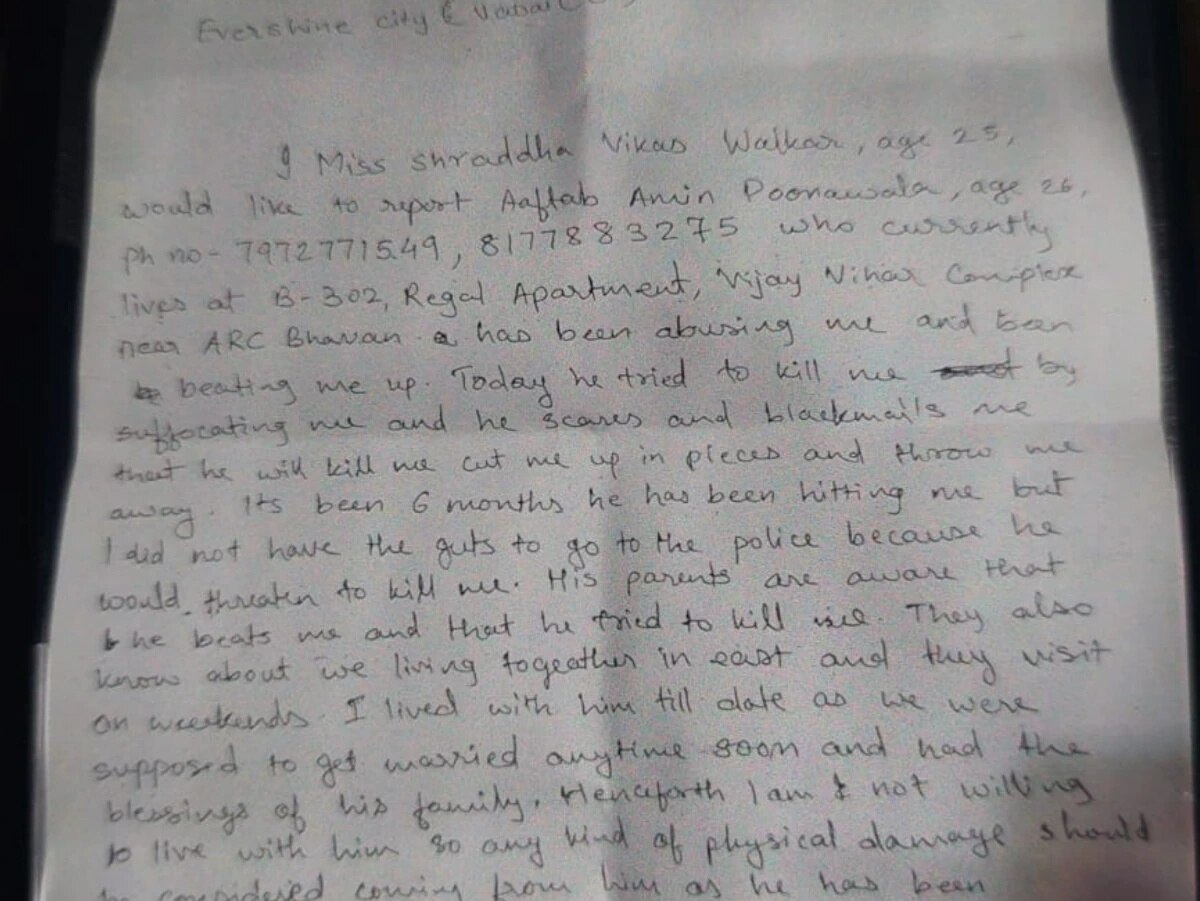 Evershine city E Vasai
I Miss Shraddha Vikas Walkar, age 25,
would like to report Aaftab Amin Poonawala, age 26,
ph no- 7972771549, 8177883275 who currently
lives at B-302, Regal Apartment, Vijay Vihar Complex
near ARC Bhavan. a has been abusing me and been
beating me up. Today he tried to kill me by
suffocating me and he scares and blackmails me
that he will kill me cut me up in pieces and throw me
away. Its been 6 months he has been hitting me but
I did not have the guts to go to the police because he
would threaten to kill me. His parents are aware that
he beats me and that he tried to kill me. They also
know about we living togeather in east and they visit
on weekends. I lived with him till date as we were
supposed to get married anytime soon and had the
blessings of his family. Henceforth I am not willing
to live with him so any kind of physical damage should
be considered coming from him as he has been